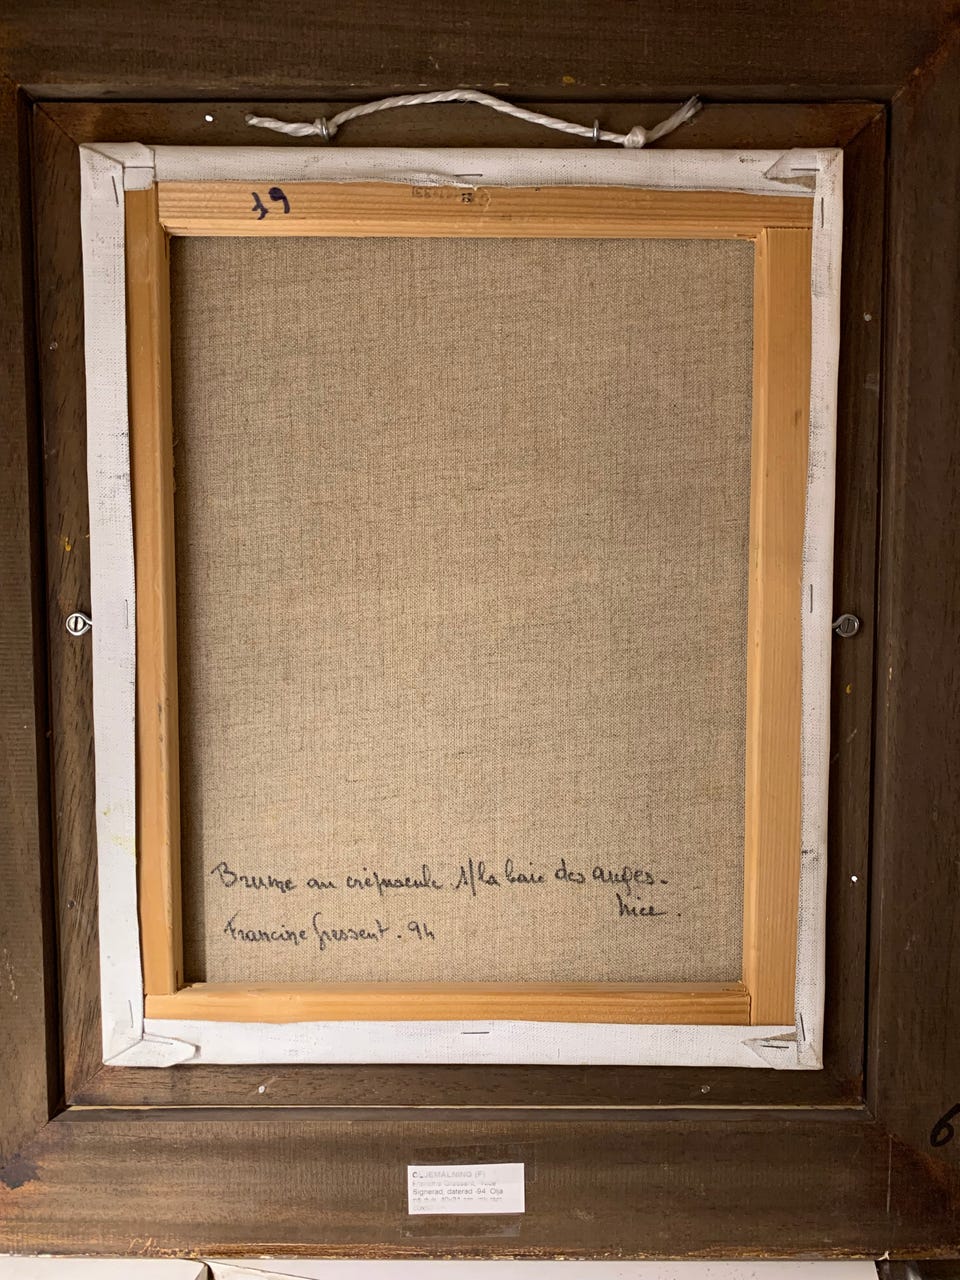 19
Brume au crépuscule s/la baie des anges.
Nice.
Francine Gressent. 94
6
OLJEMÅLNING (F)
Signerad, daterad -94. Olja